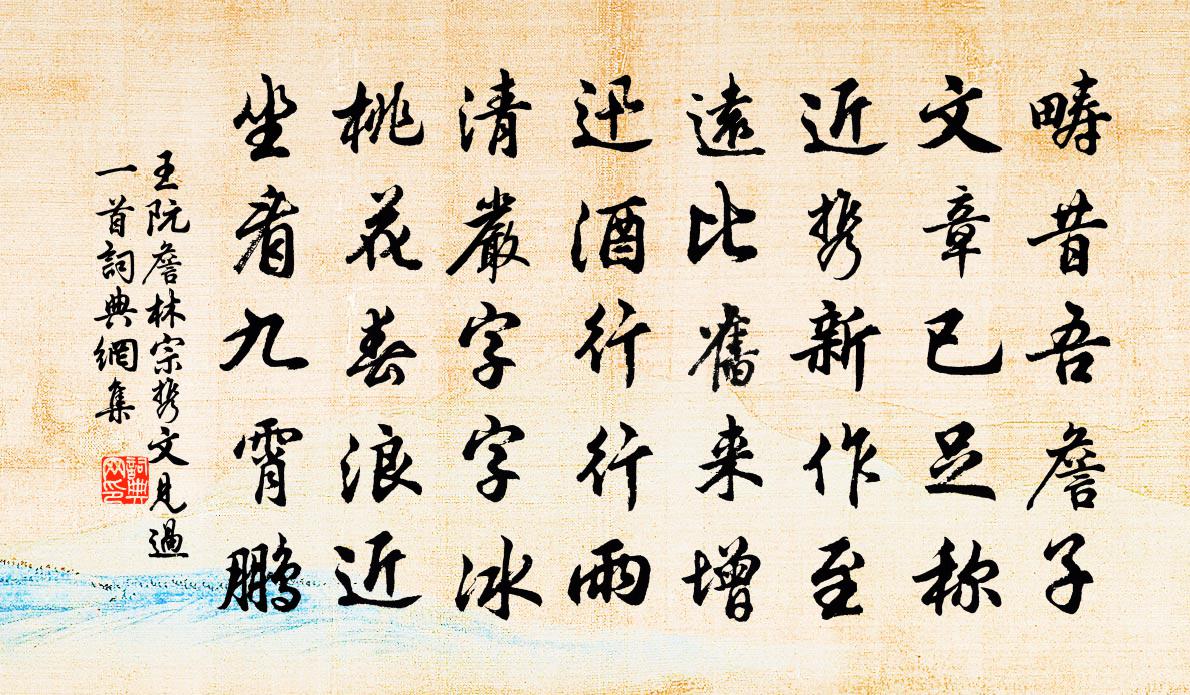 疇昔吾詹子
文章已足称
近携新作至
遠比舊来增
迅洒行行雨
清嚴字字冰
桃花春浪近
坐看九霄鵬
王阮詹林宗携文見過
一首詞典網集
詞典网印